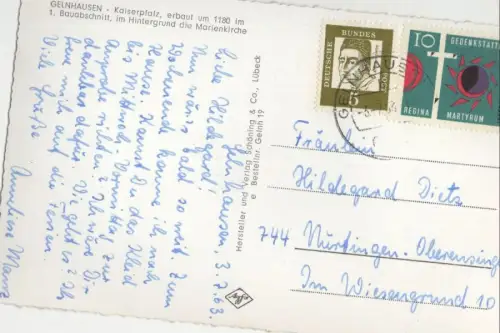 GELNHAUSEN - Kaiserpfalz, erbaut um 1180 im
1. Bauabschnitt, im Hintergrund die Marienkirche
Gelnhausen, 3.7.63
Liebe Hildegard!
Nun wär's bald so weit. Zum
Wochenende komme ich nach
Hause. Kannst Du das Kleid
bis Mittwoch Vormittag zur
Anprobe richten? Ich wäre Dir
dankbar dafür. Wie geht es? Ich
freue mich auf die Ferien.
Viele Grüße
Hersteller und Verlag Schöning & Co., Lübeck
Bestellnr. Gelnh 19
Agfa
DEUTSCHE BUNDESPOST
5
10
GEDENKSTÄTT
REGINA MARTYRUM
GELNHAUSEN
Fräulein
Hildegard Dietz
744 Nürtingen-Oberensing
Im Wiesengrund 10